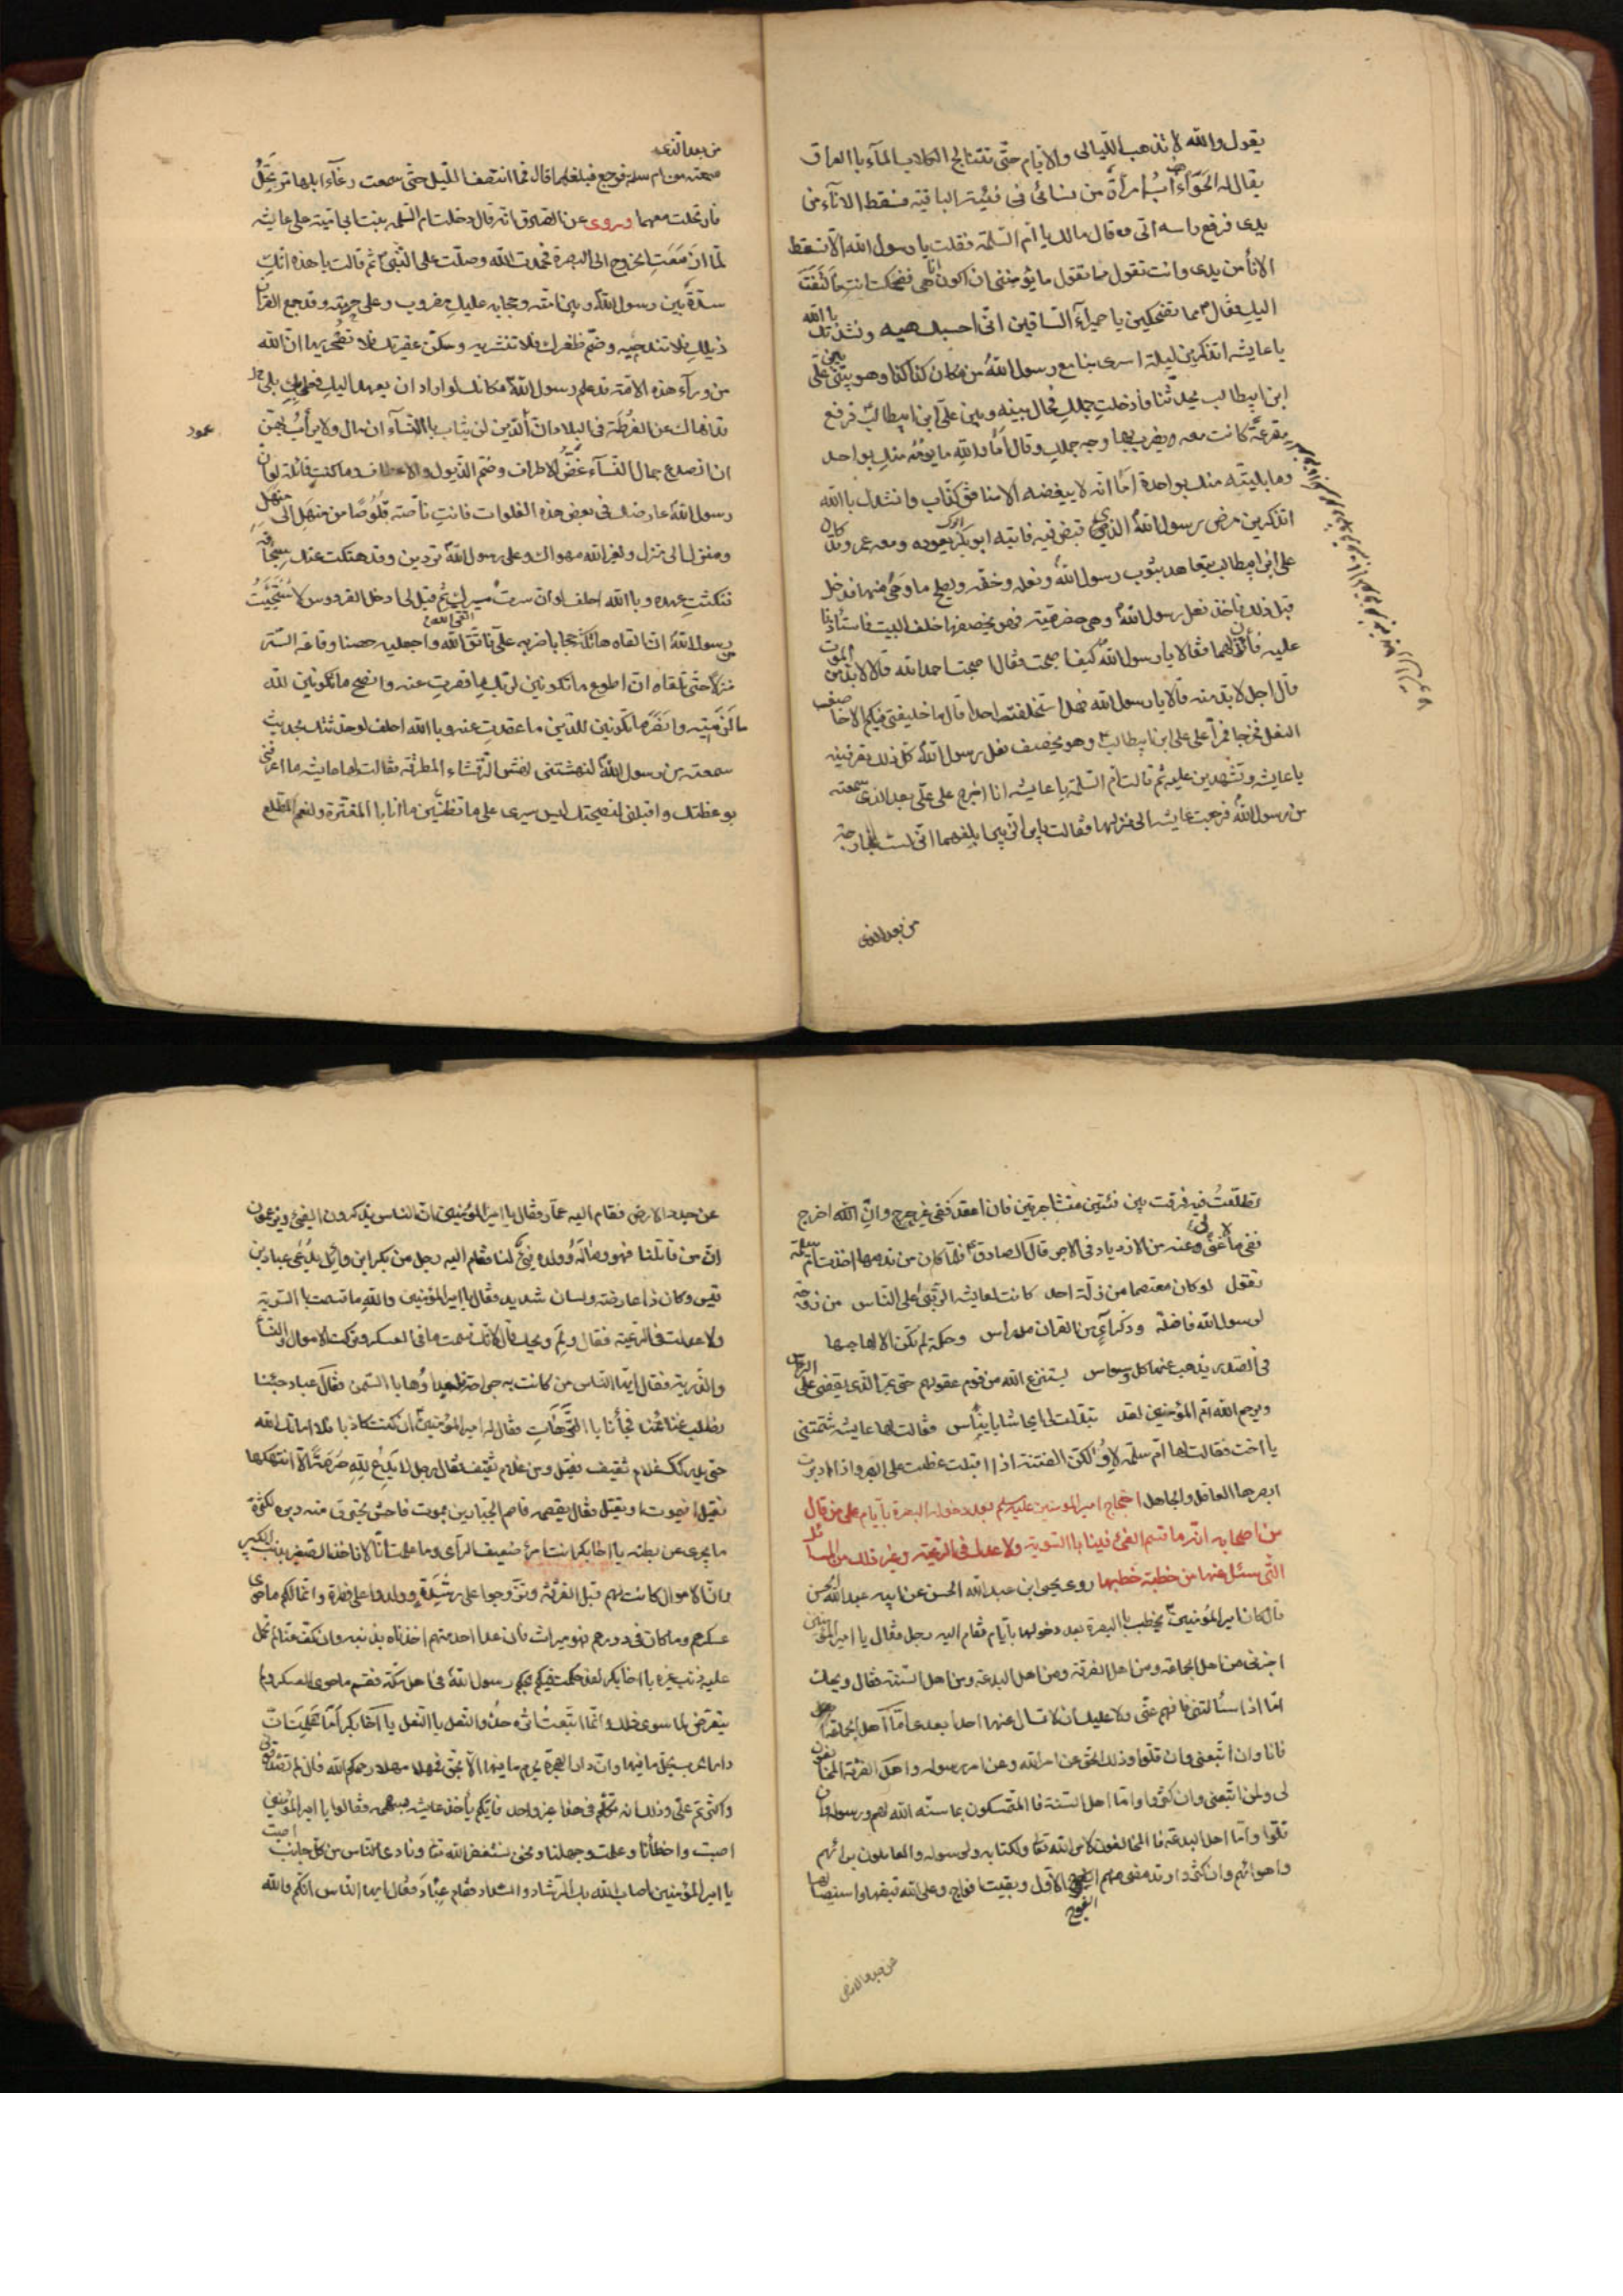 يقول والله لا تذهب الليالى والايام حتى تتنابح الكلاب الماء باالعراق
يقال له الحوأب امرأة من نسائى فى فئيته الباقية فسقط الاناء من
يدى فرفع راسه الى وقال مالك يا ام السلمة فقلت يا رسول الله الا تسقط
الانأ من يدى وانت تقول ما تقول ما يؤمننى ان اكون انا هى فضحكت انت فالتفت
اليك فقال مما تضحكين يا حميرآء الساقين انى احسبك هيه ونشدتك باالله
يا عايشه اتذكرين ليلة اسرى بنا مع رسول الله من مكان كذا كذا وهو بينى وبين على
ابن ابيطالب يحدثنا فادخلت جملك فحال بينه وبين على ابن ابيطالب فرفع
مقرعة كانت معه ويضرب بها وجه جملك وقال اما والله ما يومه منك بواحد
وما بليته منك بواحدة اما انه لا يبغضه الا منافق كذاب وانشدك باالله
اتذكرين مرض رسول الله الذى قبض فيه فاتيه ابوك ابوبكر يعوده ومعه عمر وقد كان
على ابن ابيطالب يتعاهد بثوب رسول الله ونعله وخفه ويصلح ما وهى منها فدخل
قبل ذلك فاخذ نعل رسول الله وهى حضرمية فهو يخصفها خلف البيت فاستأذنا
عليه فأذن لهما فقالا يا رسول الله كيف اصبحت فقال اصبحت احمد الله قالا لابد من الموت
قال اجل لابد منه قالا يا رسول الله فهل استخلفت احدا قال ما خليفتى فيكم الا خاصف
النعل فخرجا فمرا على على ابن ابيطالب وهو يخصف نعل رسول الله كل ذلك تعرفينه
يا عايشه وتشهدين عليه ثم قالت ام السلمة يا عايشه انا اخرج على على بعد الذى سمعته
من رسول الله فرجعت عايشه الى منزلها فقالت يا بن الزبير ابلغهما انى لست بخارجة
من بعد الذى
من بعد الذى
سمعته من ام سلمه فرجع فبلغهما قال فما انتصف الليل حتى سمعت رغآء ابلها ترتحل
فارتحلت معهما وروى عن الصادق انه قال دخلت ام السلمه بنت ابى امية على عايشه
لما ازمعت الخروج الى البصرة فحمدت الله وصلت على النبى ثم قالت يا هذه انك
سدة بين رسول الله وبين امته وحجابه عليك مضروب وعلى حرمته وقد جمع القرآن
ذيلك فلا تندحيه وضم ظفرك فلا تنشريه وسكن عقيرتك فلا تصحريها ان الله
من ورآء هذه الامة قد علم رسول الله مكانك لو اراد ان يعهد اليك فعل بك بلى قد
نهاك عن الفرطة فى البلاد وان الدين لن يثاب باالنسآء ان مال ولا يرأب بهن
عمود
ان انصدع جمال النسآء غض الاطراف وضم الذيول والاعطاف وما كنت قائلة لو ان
رسول الله عارضك فى بعض هذه الفلوات فانت ناصة قلوصا من منهل الى منهل
ومنزل الى منزل ولغير الله مهواك وعلى رسول الله تردين وقد هتكت عنك سجافه
ونكثت عهده وباالله احلف لو ان سرت مسيرك ثم قيل لى ادخل الفردوس لاستحييت
من رسول الله ان القاه هاتكة حجابا ضربه على فاتقى الله واجعليه حصنا وقاعة الستر
منزلا حتى تلقاه ان اطوع ما تكونين لربك ما قصرت عنه وانصح ما تكونين لله
ما لزمتيه وانصر ما تكونين للدين ما عقدت عنه وباالله احلف لو حدثتك بحديث
سمعته من رسول الله لنهشتنى نهش الرقشاء المطرقة فقالت لها عايشه ما اعرفنى
بوعظتك واقبلنى لنصيحتك ليس سيرى على ما تظنين ما انا باالمغترة ولنعم المطلع
تطلعت فيه فرقت بين فئتين متشاجرتين فان اقعد ففى غير حرج وان الله اخرج
ففى ما لا غنى بى وعنه من الازدياد فى الاجر قال الصادق فلما كان من ندمها اخذت ام سلمة
تقول لو كان معتصما من زلة احد كانت لعايشه الرتبى على الناس من زوجة
لرسول الله فاضلة وذكر آى من القران مدراس وحكمة لم تكن الا لهاجسها
فى الصدر يذهب عنها كل وسواس يستنزع الله من قوم عقولهم حتى يمر الذى يقضى على الراس
ويرحم الله ام المؤمنين لقد تبدلت لى ايحاشا بايناس فقالت لها عايشه شتمتنى
يا اخت فقالت لها ام سلمة لا ولكن الفتنة اذا اقبلت غطت على البصر واذا ادبرت
ابصرها العاقل والجاهل احتجاج امير المومنين عليه سلم بعد دخوله البصرة بأيام على من قال
من اصحابه انه ما قسم الفئ فينا باالسوية ولا عدل فى الرعية وغير ذلك من المسائل
التى سئل عنها من خطبة خطبها روى يحيى ابن عبدالله الحسن عن ابيه عبدالله الحسن
قال كان امير المؤمنين يخطب باالبصرة بعد دخولها بأيام فقام اليه رجل فقال يا امير المؤمنين
اخبرنى من اهل الجماعة ومن اهل الفرقة ومن اهل البدعة ومن اهل السنة فقال ويحك
اما اذا سئالتنى فافهم عنى ولا عليك ان لا تسال عنها احدا بعدى اما اهل الجماعة
فانا وان اتبعنى وان قلوا وذلك الحق عن امر الله وعن امر رسوله واهل الفرقة المخالفون
لى ولمن اتبعنى وان كثروا واما اهل السنة فا المتمسكون بما سنه الله لهم ورسوله وان
قلوا واما اهل البدعة فا المخالفون لامر الله تعا ولكتابه ولرسوله والعاملون برائهم
واهوائهم وان كثروا وقد مضى منهم الفوج الاول وبقيت افواج وعلى الله قبضها واستيصالها
الفوج
عن جدد الارض
عن جدد الارض فقام اليه عمار فقال يا امير المؤمنين ان الناس يذكرون الفئ ويزعمون
ان من قاتلنا فهو وماله وولده فئ لنا فقام اليه رجل من بكر ابن وائل يدعى عباد بن
قيس وكان ذا عارضة ولسان شديد فقال يا امير المؤمنين والله ما قسمت باالسوية
ولا عدلت فى الرعية فقال ولم ويحك قال لانك قسمت ما فى العسكر وتركت الاموال والنسأ
والذرية فقال ايها الناس من كانت به جراحة فليداوها باالسمن فقال عباد جئنا
نطلب غنائمنا فجأنا باالترهات فقال له امير المؤمنين ان كنت كاذبا فلا اماتك الله
حتى يدركك غلام ثقيف فقيل ومن غلام ثقيف فقال رجل لا يدع لله حرمة الا انتهكها
فقيل افيموت او يقتل فقال يقصمه قاصم الجبارين بموت فاحش يحترق منه دبره لكثرة
ما يجرى من بطنه يا اخا بكر انت امرؤ ضعيف الرأى وما علمت انا لا ناخذ الصغير بذنب الكبير
وان الاموال كانت لهم قبل الفرقة وتزوجوا على رشدة وولدوا على فطرة وانما لكم ما حوى
عسكرهم وما كان فى دورهم فهو ميراث فان عدا احد منهم اخذناه بذنبه وان كف عنا لم نحمل
عليه ذنب غيره يا اخا بكر لقد حكمت فيكم بحكم رسول الله فى اهل مكة فقسم ما حوى العسكر ولم
يتعرض لما سوى ذلك وانما اتبعت اثره حذو النعل باالنعل يا اخا بكر اما علمت ان
دار الحرب يحل ما فيها وان دار الهجرة يحرم ما فيها الا بحق فمهلا مهلا رحمكم الله فان لم تصدقونى
واكثرتم على وذلك انه تكلم فى هذا غير واحد فايكم يأخذ عايشه بسهمه فقالوا يا امير المؤمنين
اصبت واخطأنا وعلمت وجهلنا ونحن نستغفر الله تعا ونادى الناس من كل جانب اصبت
يا امير المؤمنين اصاب الله بك الرشاد والسداد فقام عباد فقال ايها الناس انكم والله